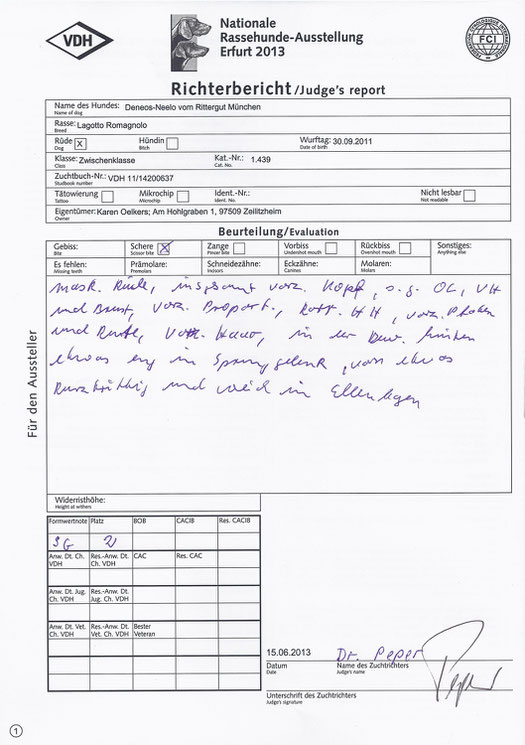 VDH
Nationale
Rassehunde-Ausstellung
Erfurt 2013
FEDERATION CYNOLOGIQUE INTERNATIONALE
FCI
Richterbericht/Judge's report
Name des Hundes: Deneos-Neelo vom Rittergut München
Name of dog
Rasse: Lagotto Romagnolo
Breed
Rüde X Hündin Wurftag: 30.09.2011
Dog Bitch Date of birth
Klasse: Zwischenklasse Kat.-Nr.: 1.439
Class Cat. No.
Zuchtbuch-Nr.: VDH 11/14200637
Studbook number
Tätowierung Mikrochip Ident.-Nr.: Nicht lesbar
Tattoo Microchip Ident. No. Not readable
Eigentümer: Karen Oelkers; Am Hohlgraben 1, 97509 Zeilitzheim
Owner
Beurteilung/Evaluation
Gebiss: Schere X Zange Vorbiss Rückbiss Sonstiges:
Bite Scissor bite Pincer bite Undershot mouth Overshot mouth Anything else
Es fehlen: Prämolare: Schneidezähne: Eckzähne: Molaren:
Missing teeth Premolars Incisors Canines Molars
mask. Rüde, insgesamt vorz. Kopf, s.g. OL, VH
und Brust, vorz. Proport., HH, vorz. Pfoten
und Rute, vorz. Haar, in der Bew. hinten
etwas eng im Sprunggelenk, vorn etwas
und weich im Ellenbogen
Für den Aussteller
Widerristhöhe:
Height at withers
Formwertnote Platz BOB CACIB Res. CACIB
SG 2
Anw. Dt. Ch. VDH Res.-Anw. Dt. Ch. VDH CAC Res. CAC
Anw. Dt. Jug. Ch. VDH Res.-Anw. Dt. Jug. Ch. VDH
Anw. Dt. Vet. Ch. VDH Res.-Anw. Dt. Vet. Ch. VDH Bester Veteran
15.06.2013 Dr. Peper
Datum Name des Zuchtrichters
Date Judge's name
Peper
Unterschrift des Zuchtrichters
Judge's signature
1